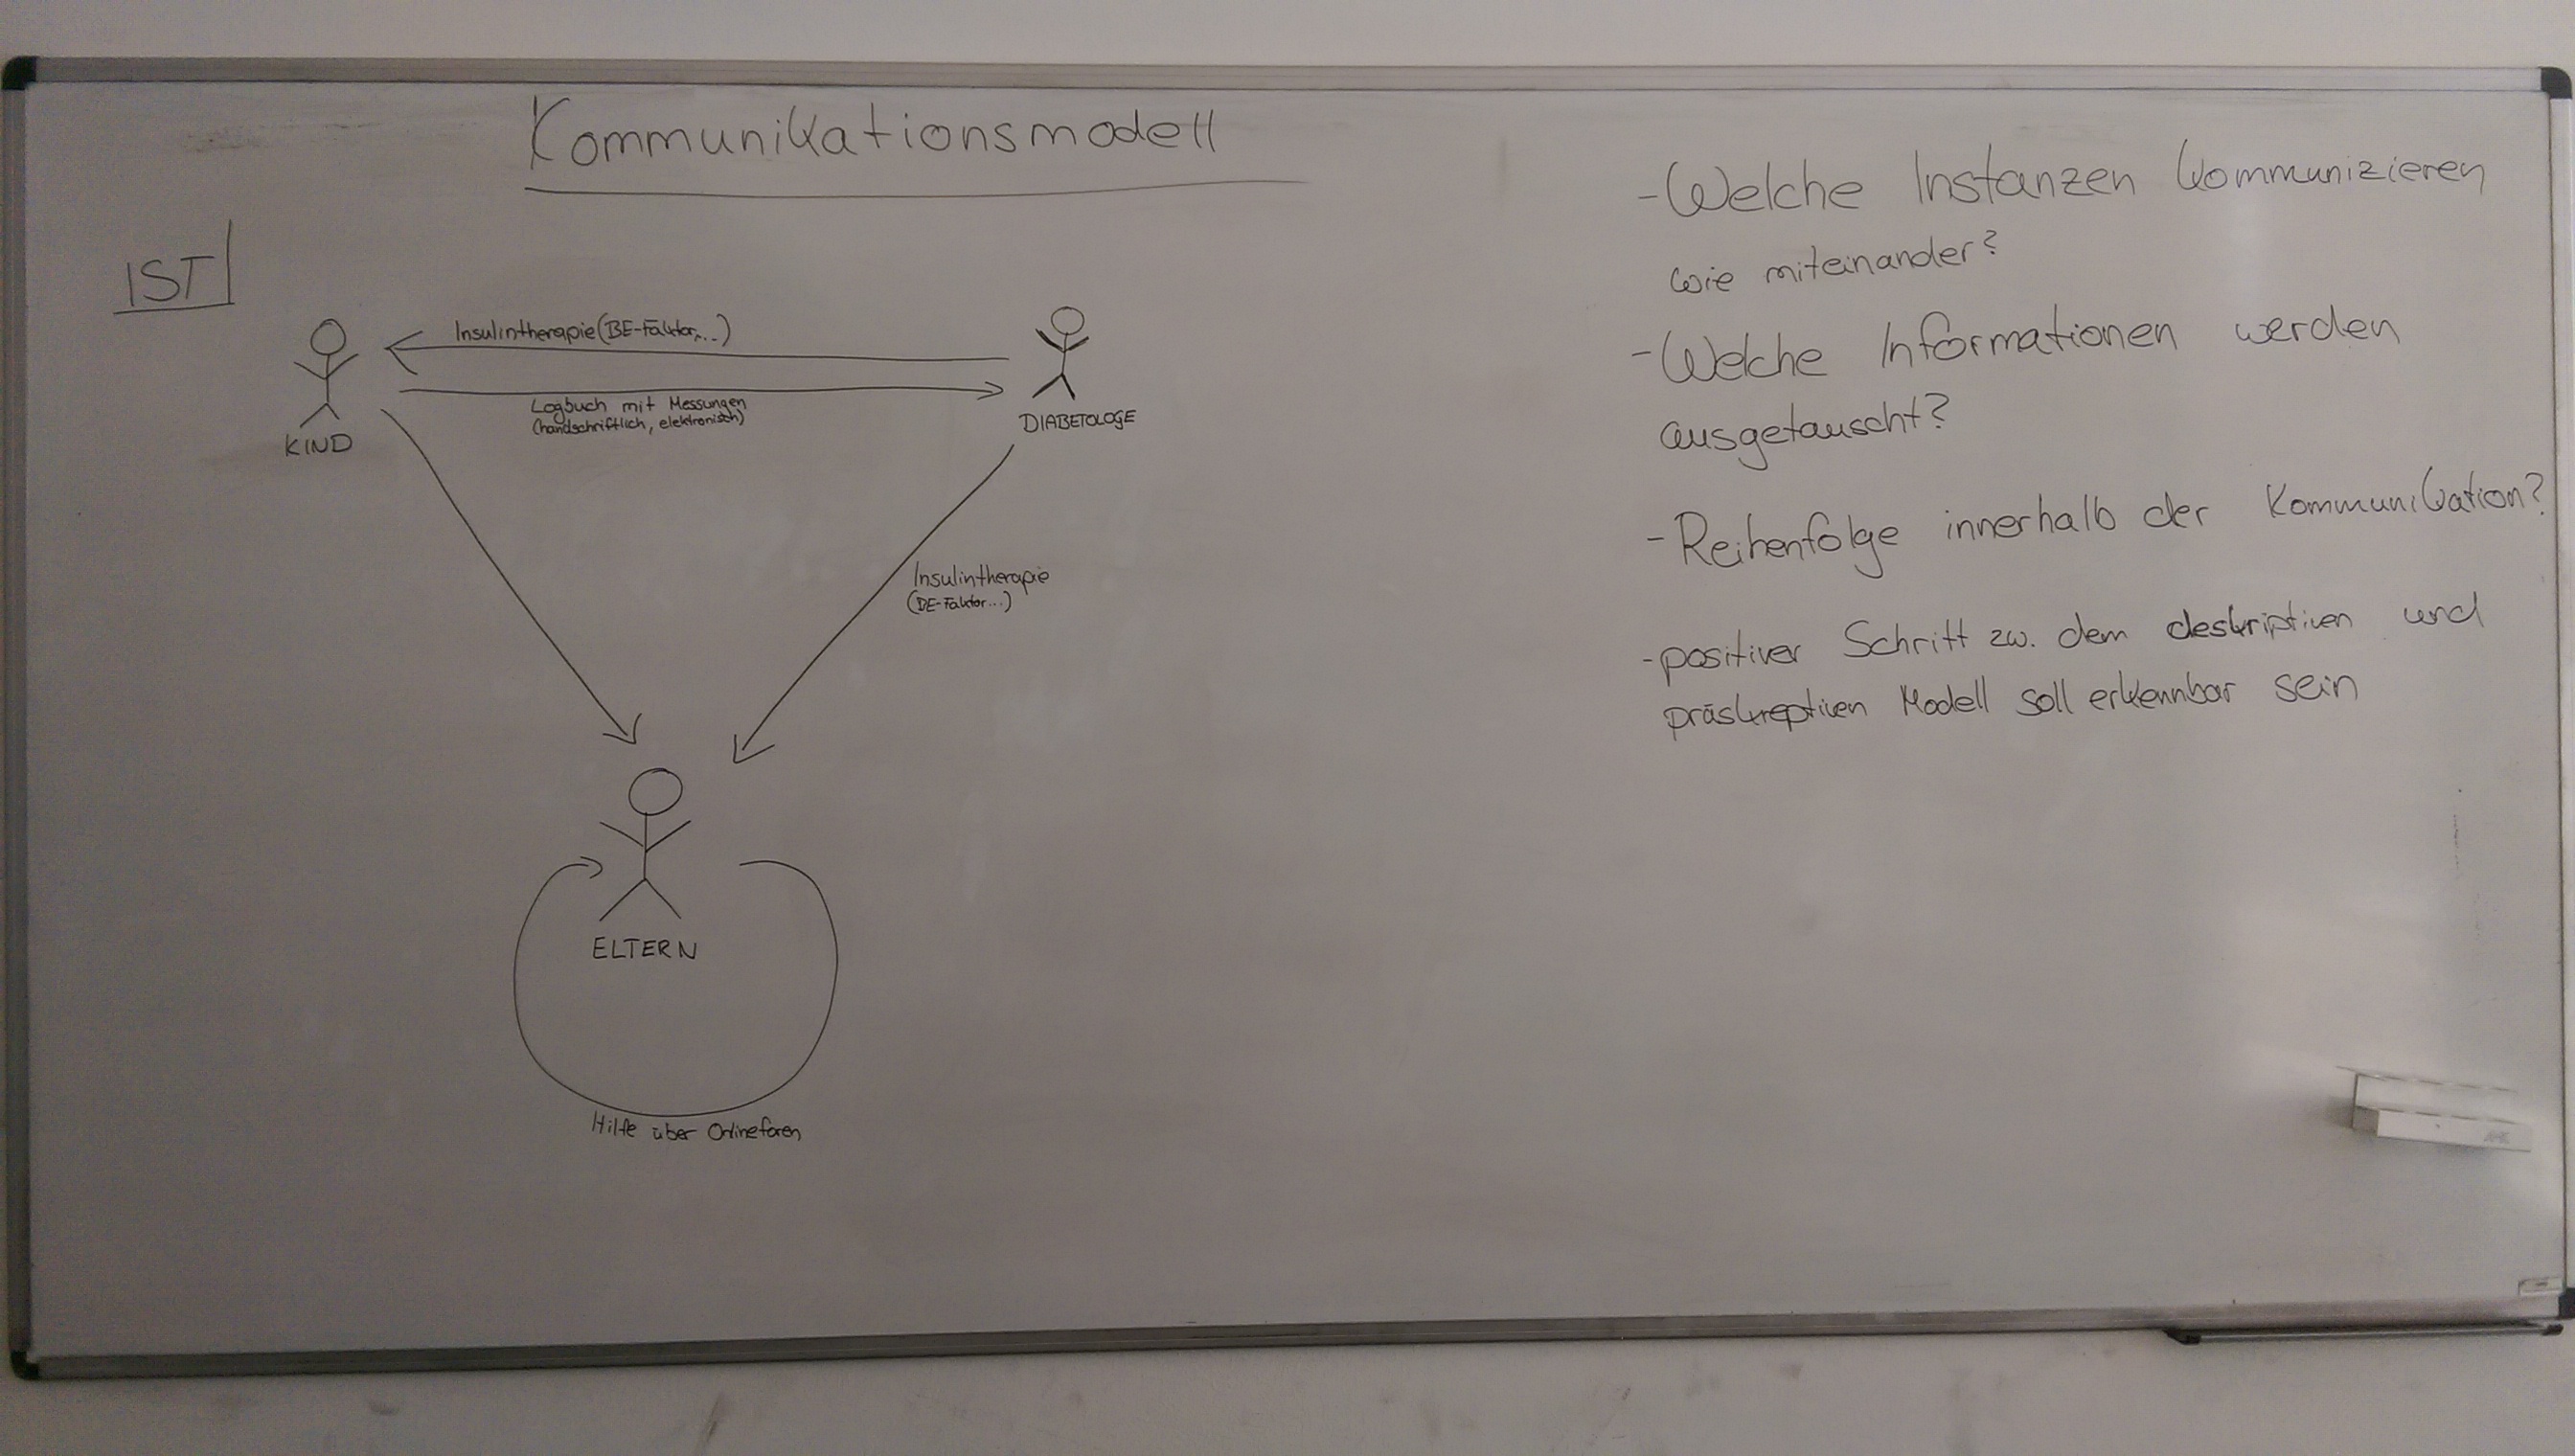 Kommunikationsmodell
IST
Insulintherapie (BE-Faktor,...)
Logbuch mit Messungen
(handschriftlich, elektronisch)
KIND
DIABETOLOGE
Insulintherapie
(BE-Faktor...)
ELTERN
Hilfe über Onlineforen
- Welche Instanzen kommunizieren
wie miteinander?
- Welche Informationen werden
ausgetauscht?
- Reihenfolge innerhalb der Kommunikation?
- positiver Schritt zw. dem deskriptiven und
präskreptiven Modell soll erkennbar sein